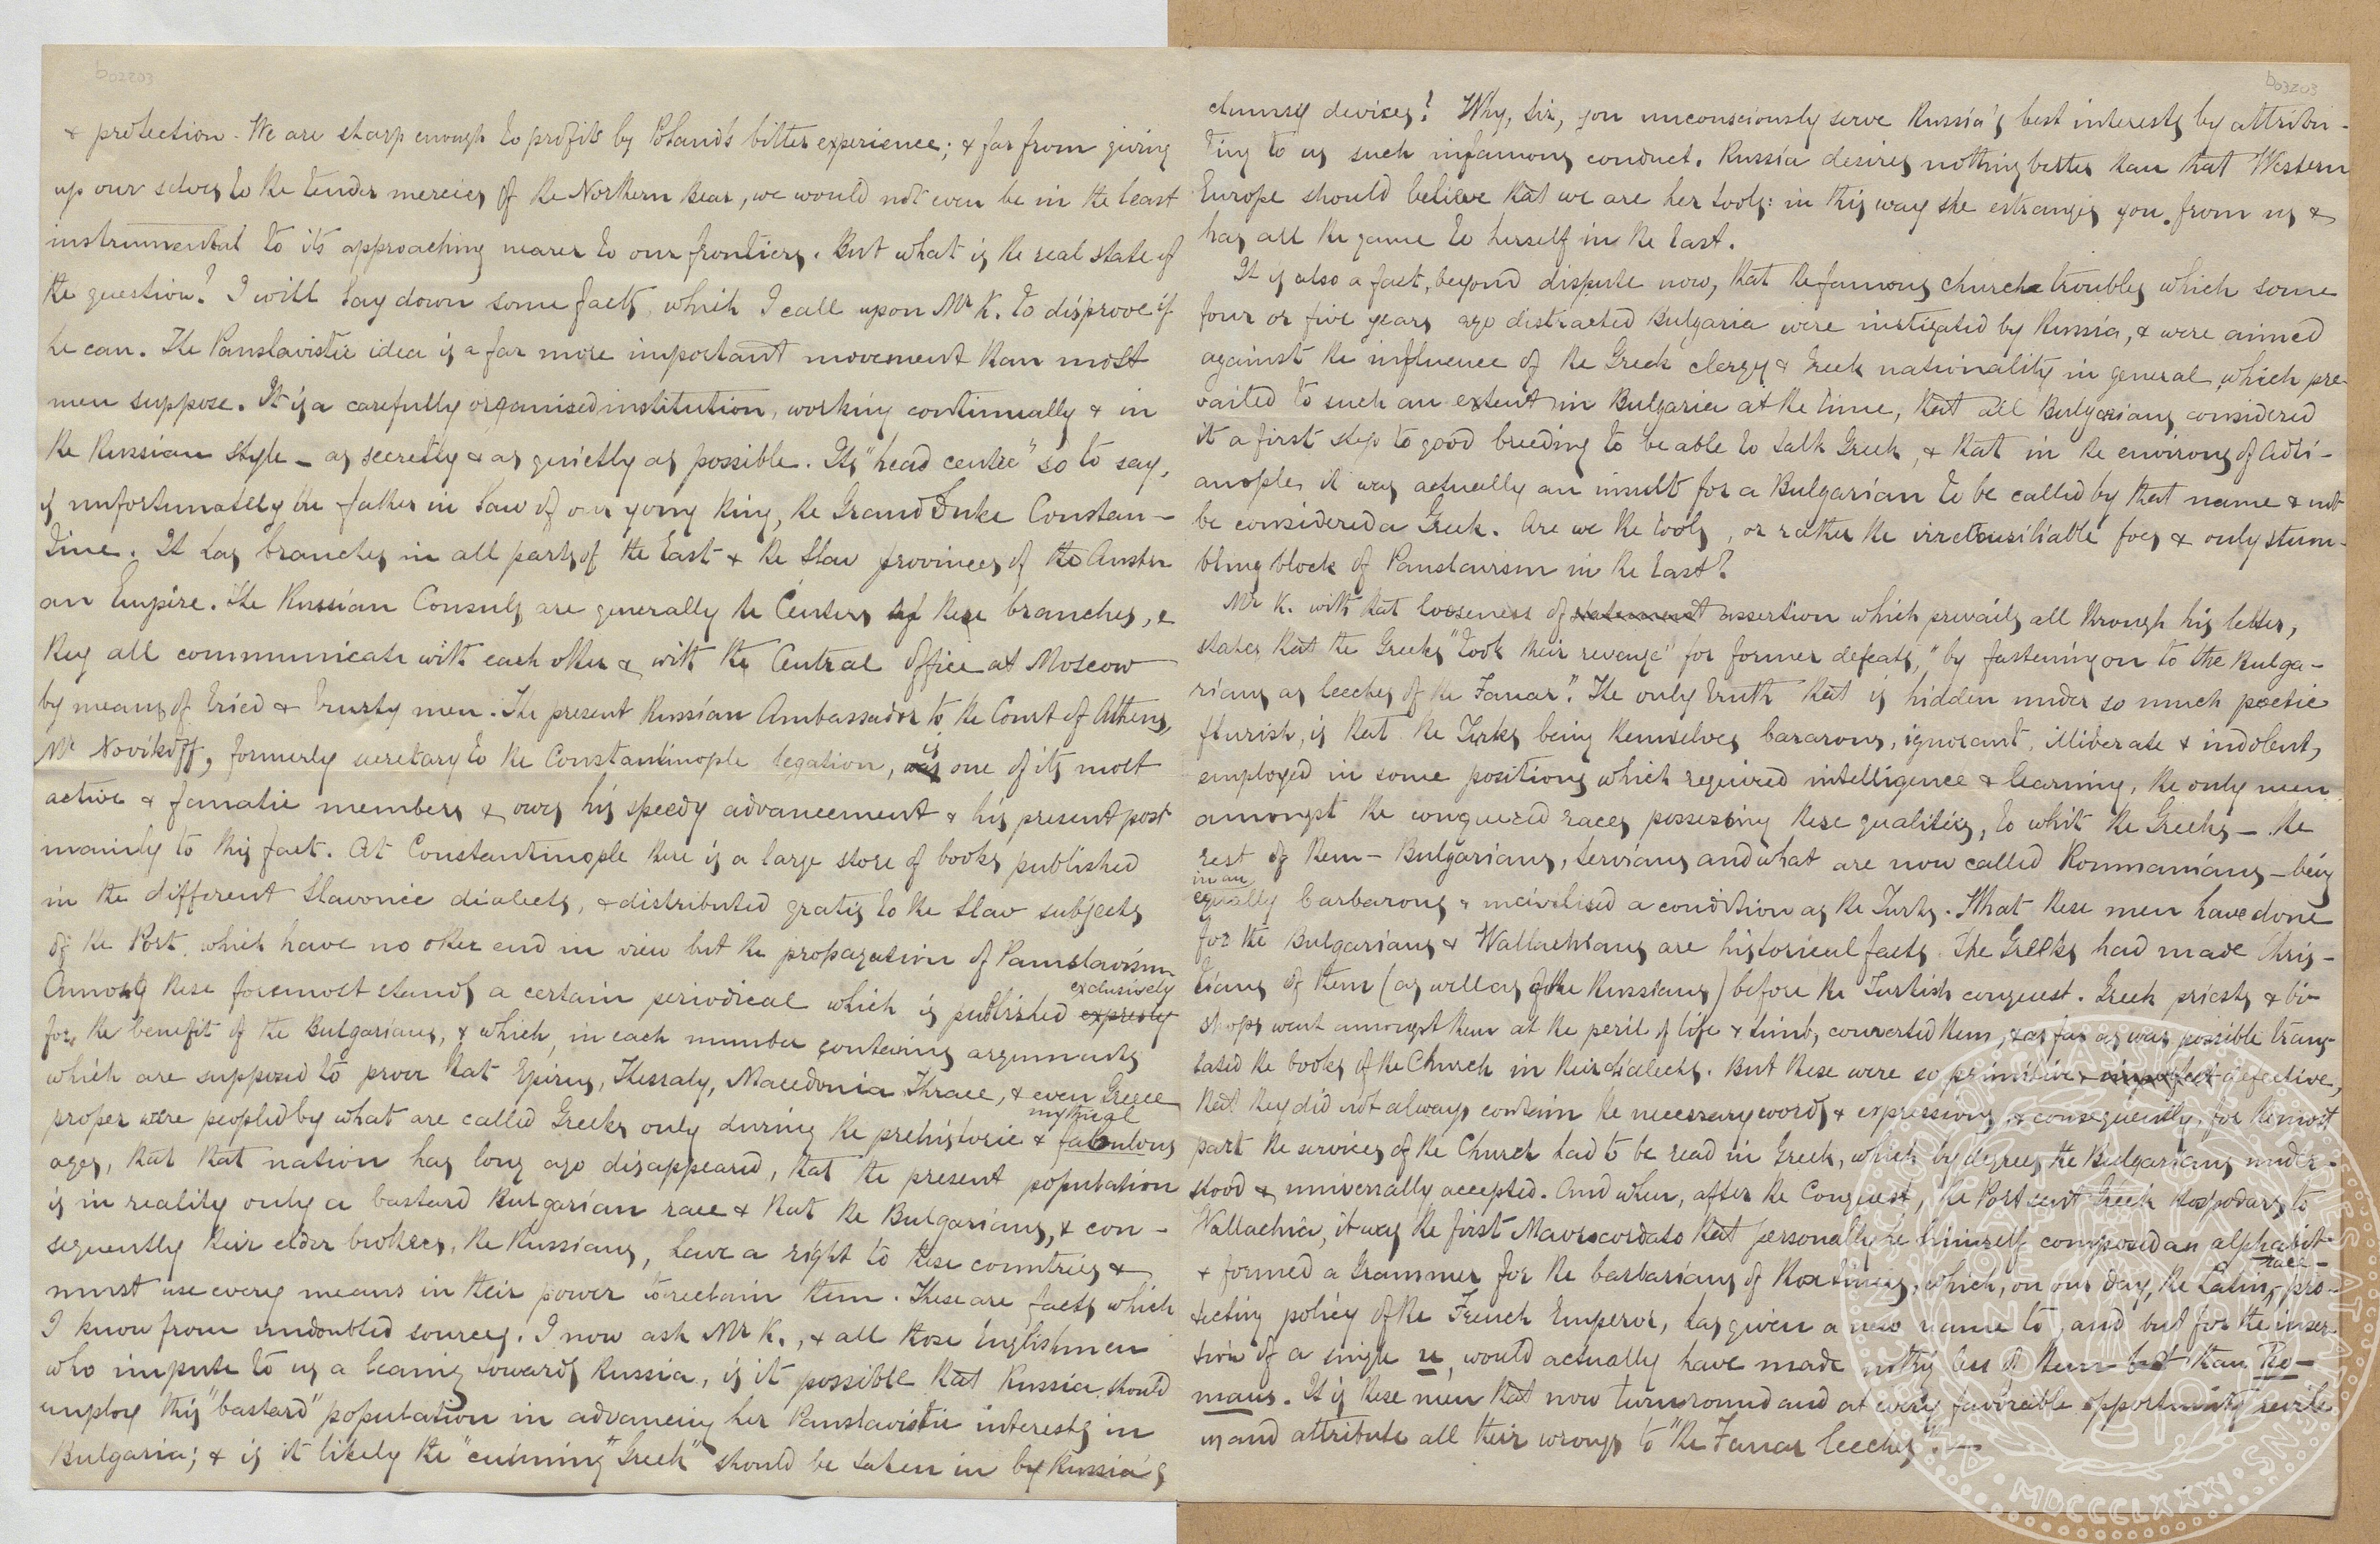 b02203
& protection. We are sharp enough to profit by Poland's bitter experience; & far from giving
up our selves to the tender mercies of the Northern Bear, we would not even be in the least
instrumental to its approaching nearer to our frontiers. But what is the real state of
the question? I will lay down some facts which I call upon Mr K. to disprove if
he can. The Panslavistic idea is a far more important movement than most
men suppose. It is a carefully organised institution, working continually & in
the Russian style – as secretly & as quietly as possible. Its "head centre" so to say,
is unfortunately the father in law of our young King, the Grand Duke Constan-
tine. It has branches in all parts of the East & the Slav provinces of the Austri
an Empire. The Russian Consuls are generally the Centers of these branches, &
they all communicate with each other & with the Central Office at Moscow
by means of tried & trusty men. The present Russian Ambassador to the Court of Athens,
Mr Novikoff, formerly secretary to the Constantinople legation, was is one of its most
active & fanatic members & owes his speedy advancement & his present post
mainly to this fact. At Constantinople there is a large store of books published
in the different Slavonic dialects, & distributed gratis to the Slav subjects
of the Port which have no other end in view but the propagation of Panslavism.
Among these foremost stands a certain periodical which is published expresly exclusively
for the benefit of the Bulgarians, & which, in each number contains arguments
which are supposed to prove that Epirus, Thessaly, Macedonia Thrace, & even Greece
proper were peopled by what are called Greeks only during the prehistoric & fabulous mythical
ages, that that nation has long ago disappeared, that the present population
is in reality only a bastard Bulgarian race & that the Bulgarians, & con-
sequently their elder brothers, the Russians, have a right to these countries &
must use every means in their power to reclaim them. These are facts which
I know from undoubted sources. I now ask Mr K., & all those Englishmen
who impute to us a leaning towards Russia, is it possible that Russia should
employ this "bastard" population in advancing her Panslavistic interests in
Bulgaria; & is it likely the "cunning Greek" should be taken in by Russia's
b03203
clumsy devices? Why, Sir, you unconsciously serve Russia's best interests by attribu-
ting to us such infamous conduct. Russia desires nothing better than that Western
Europe should believe that we are her tools: in this way she estranges you from us &
has all the game to herself in the East.
It is also a fact, beyond dispute now, that the famous church troubles which some
four or five years ago distracted Bulgaria were instigated by Russia, & were aimed
against the influence of the Greek clergy & Greek nationality in general which pre-
vailed to such an extent in Bulgaria at the time, that all Bulgarians considered
it a first step to good breeding to be able to talk Greek, & that in the environs of Adri-
anople, it was actually an insult for a Bulgarian to be called by that name & not
be considered a Greek. Are we the tools, or rather the irreconsiliable foes & only stum-
bling block of Panslavism in the East?
Mr K. with that looseness of statement assertion which prevails all through his letter,
states that the Greeks "took their revenge" for former defeats, "by fastening on to the Bulga-
rians as leeches of the Fanar". The only truth that is hidden under so much poetic
flurish, is that the Turks being themselves bararous, ignorant, illiterate & indolent,
employed in some positions which required intelligence & learning, the only men
amongst the conquered races possessing these qualities, to whit the Greeks – the
rest of them – Bulgarians, Servians and what are now called Roumanians – being
in an equally barbarous & uncivilised a condition as the Turks. What these men have done
for the Bulgarians & Wallachians are historical facts. The Greeks had made Chris-
tians of them (as well as of the Russians) before the Turkish conquest. Greek priests & bi-
shops went amongst them at the peril of life & limb, converted them, & as far as was possible trans-
lated the books of the Church in their dialects. But these were so primitive & imperfect defective,
that they did not always contain the necessary words & expressions, & consequently, for the most
part the services of the Church had to be read in Greek, which by degrees the Bulgarians under-
stood & universally accepted. And when, after the Conquest, the Port sent Greek Hospodars to
Wallachia, it was the first Mavrocordato that personally he himself composed an alphabet
& formed a Grammer for the barbarians of Roxtinies, which, on our day, the Latin-race-pro-
tecting policy of the French Emperor, has given a new name to, and but for the inser-
tion of a single u, would actually have made nothing less of them but than Ro-
mans. It is these men that now turn round and at every favorable opportunity revile
us and attribute all their wrongs to "the Fanar leeches". –